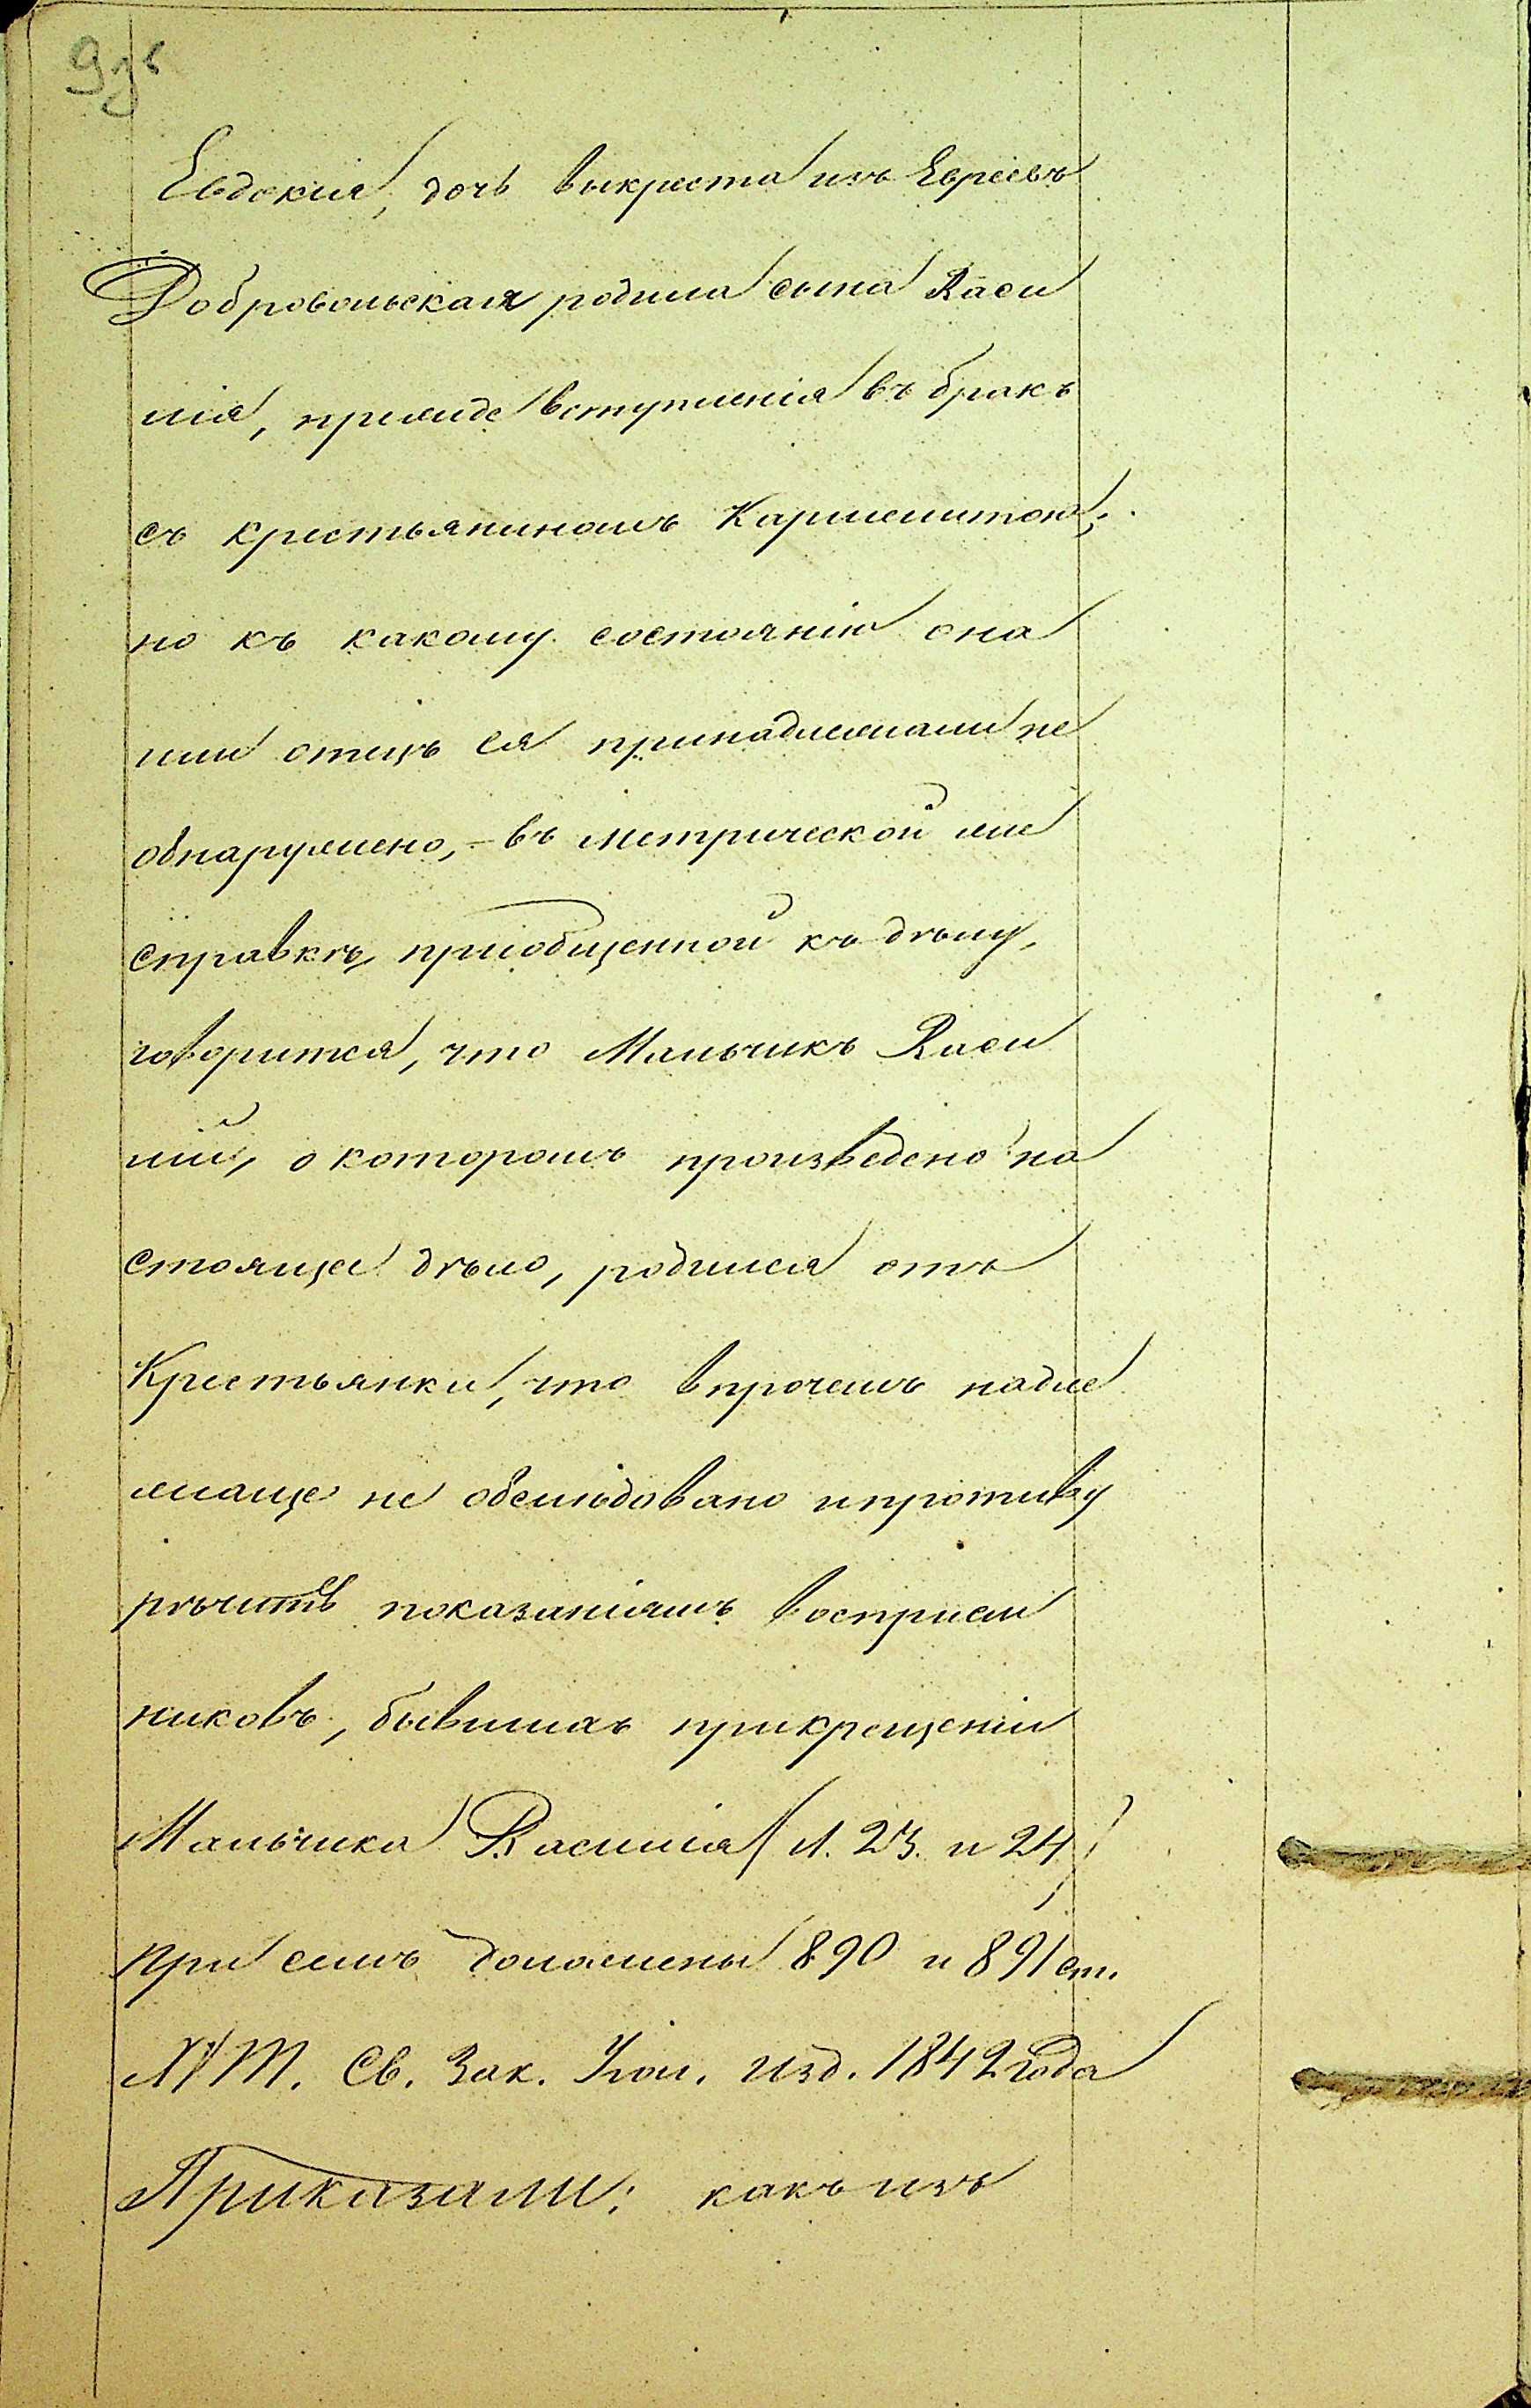 Евдокия, дочь выкреста изъ Евреевъ
Добровольская родила сына Васи
лія, прежде вступленія въ бракъ
съ крестьяниномъ
но къ какому состоянію она
или отецъ ея принадлежали не
обнаружено, - въ метрической же
справкѣ, пріобщенной къ дѣлу,
говорится, что Мальчикъ Васи
лій, о которомъ произведено на
стоящее дѣло, родился отъ
Крестьянки, что впрочемъ надле
жаще не обслѣдовано и противу
рѣчитъ показаніямъ воспріем
никовъ, бывшихъ при крещеніи
Мальчика Василія (л. 23. и 24)
При семъ доложены 890 и 891 ст.
Т. Св. Зак. Изд. 1842 года
Приказали: какъ изъ